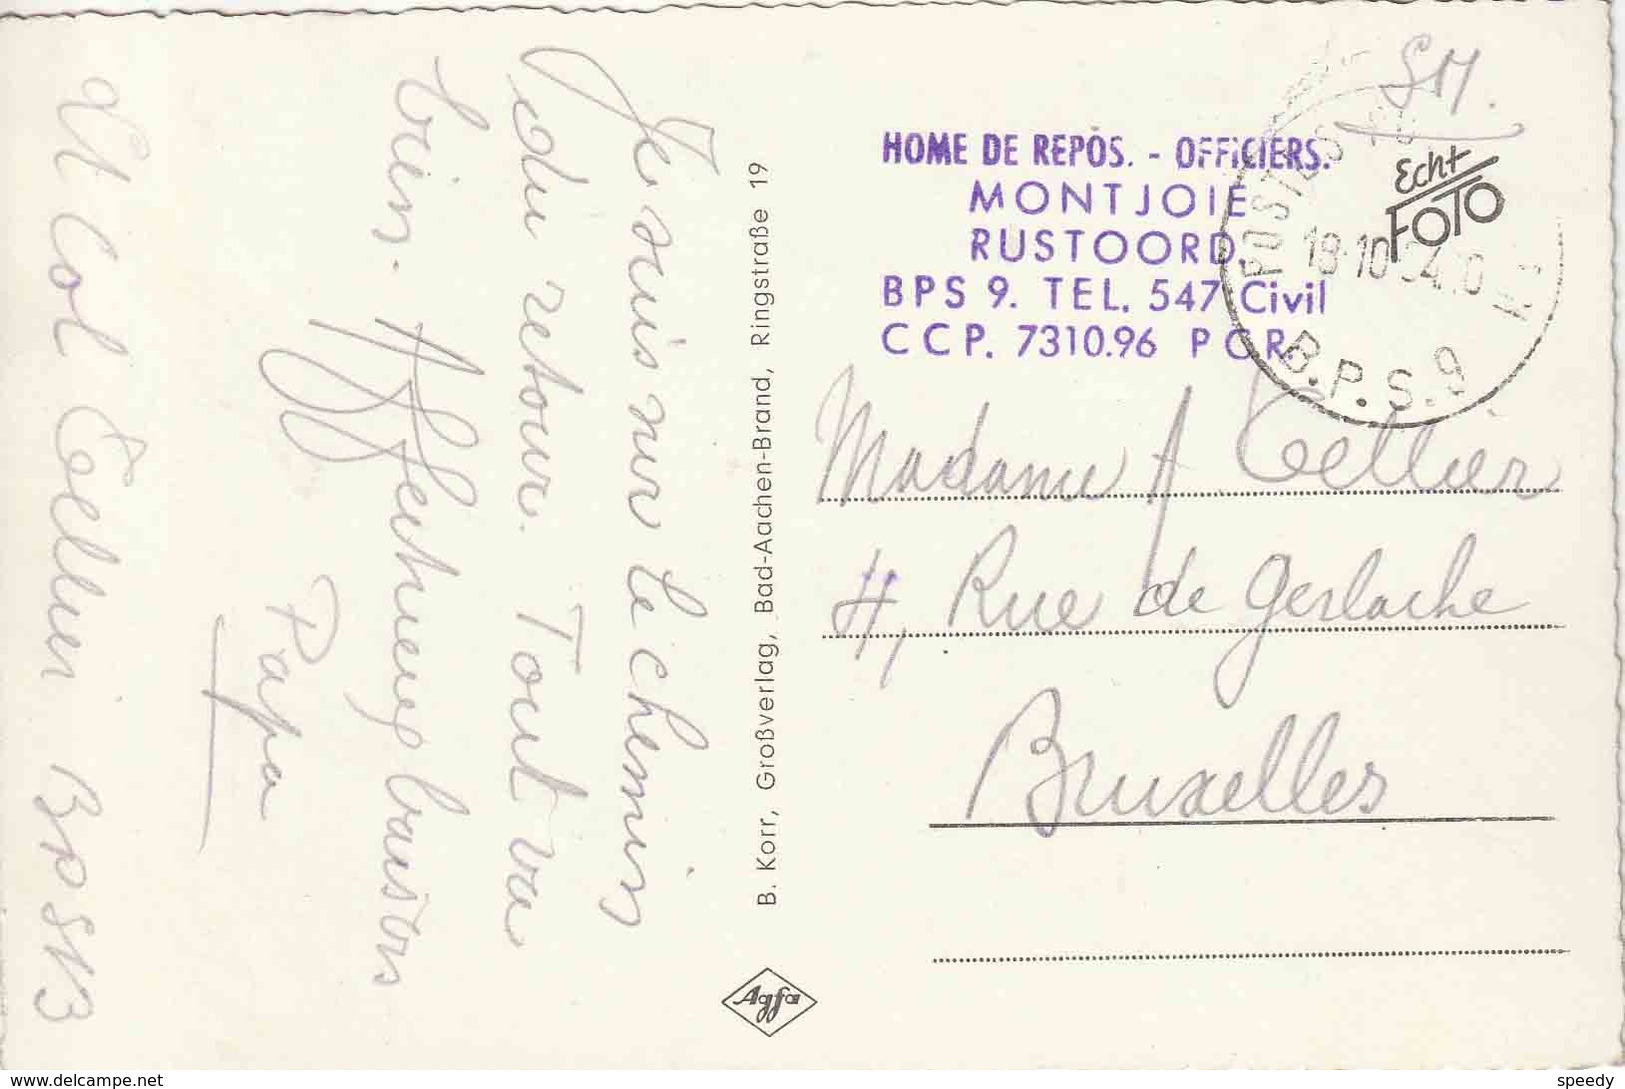 Je suis sur le chemin
du retour. Tout va
bien. Affectueux baisers
Papa
Lt Col Tellier BPS N3
B. Korr, Großverlag, Bad-Aachen-Brand, Ringstraße 19
Agfa
SM.
HOME DE REPOS. - OFFICIERS.
MONTJOIE
RUSTOORD.
BPS 9. TEL. 547 Civil
CCP. 7310.96 PCR.
Echt
FOTO
18-10
B.P.S.9
Madame Tellier
4, Rue de Gerlache
Bruxelles
www.delcampe.net
speedy